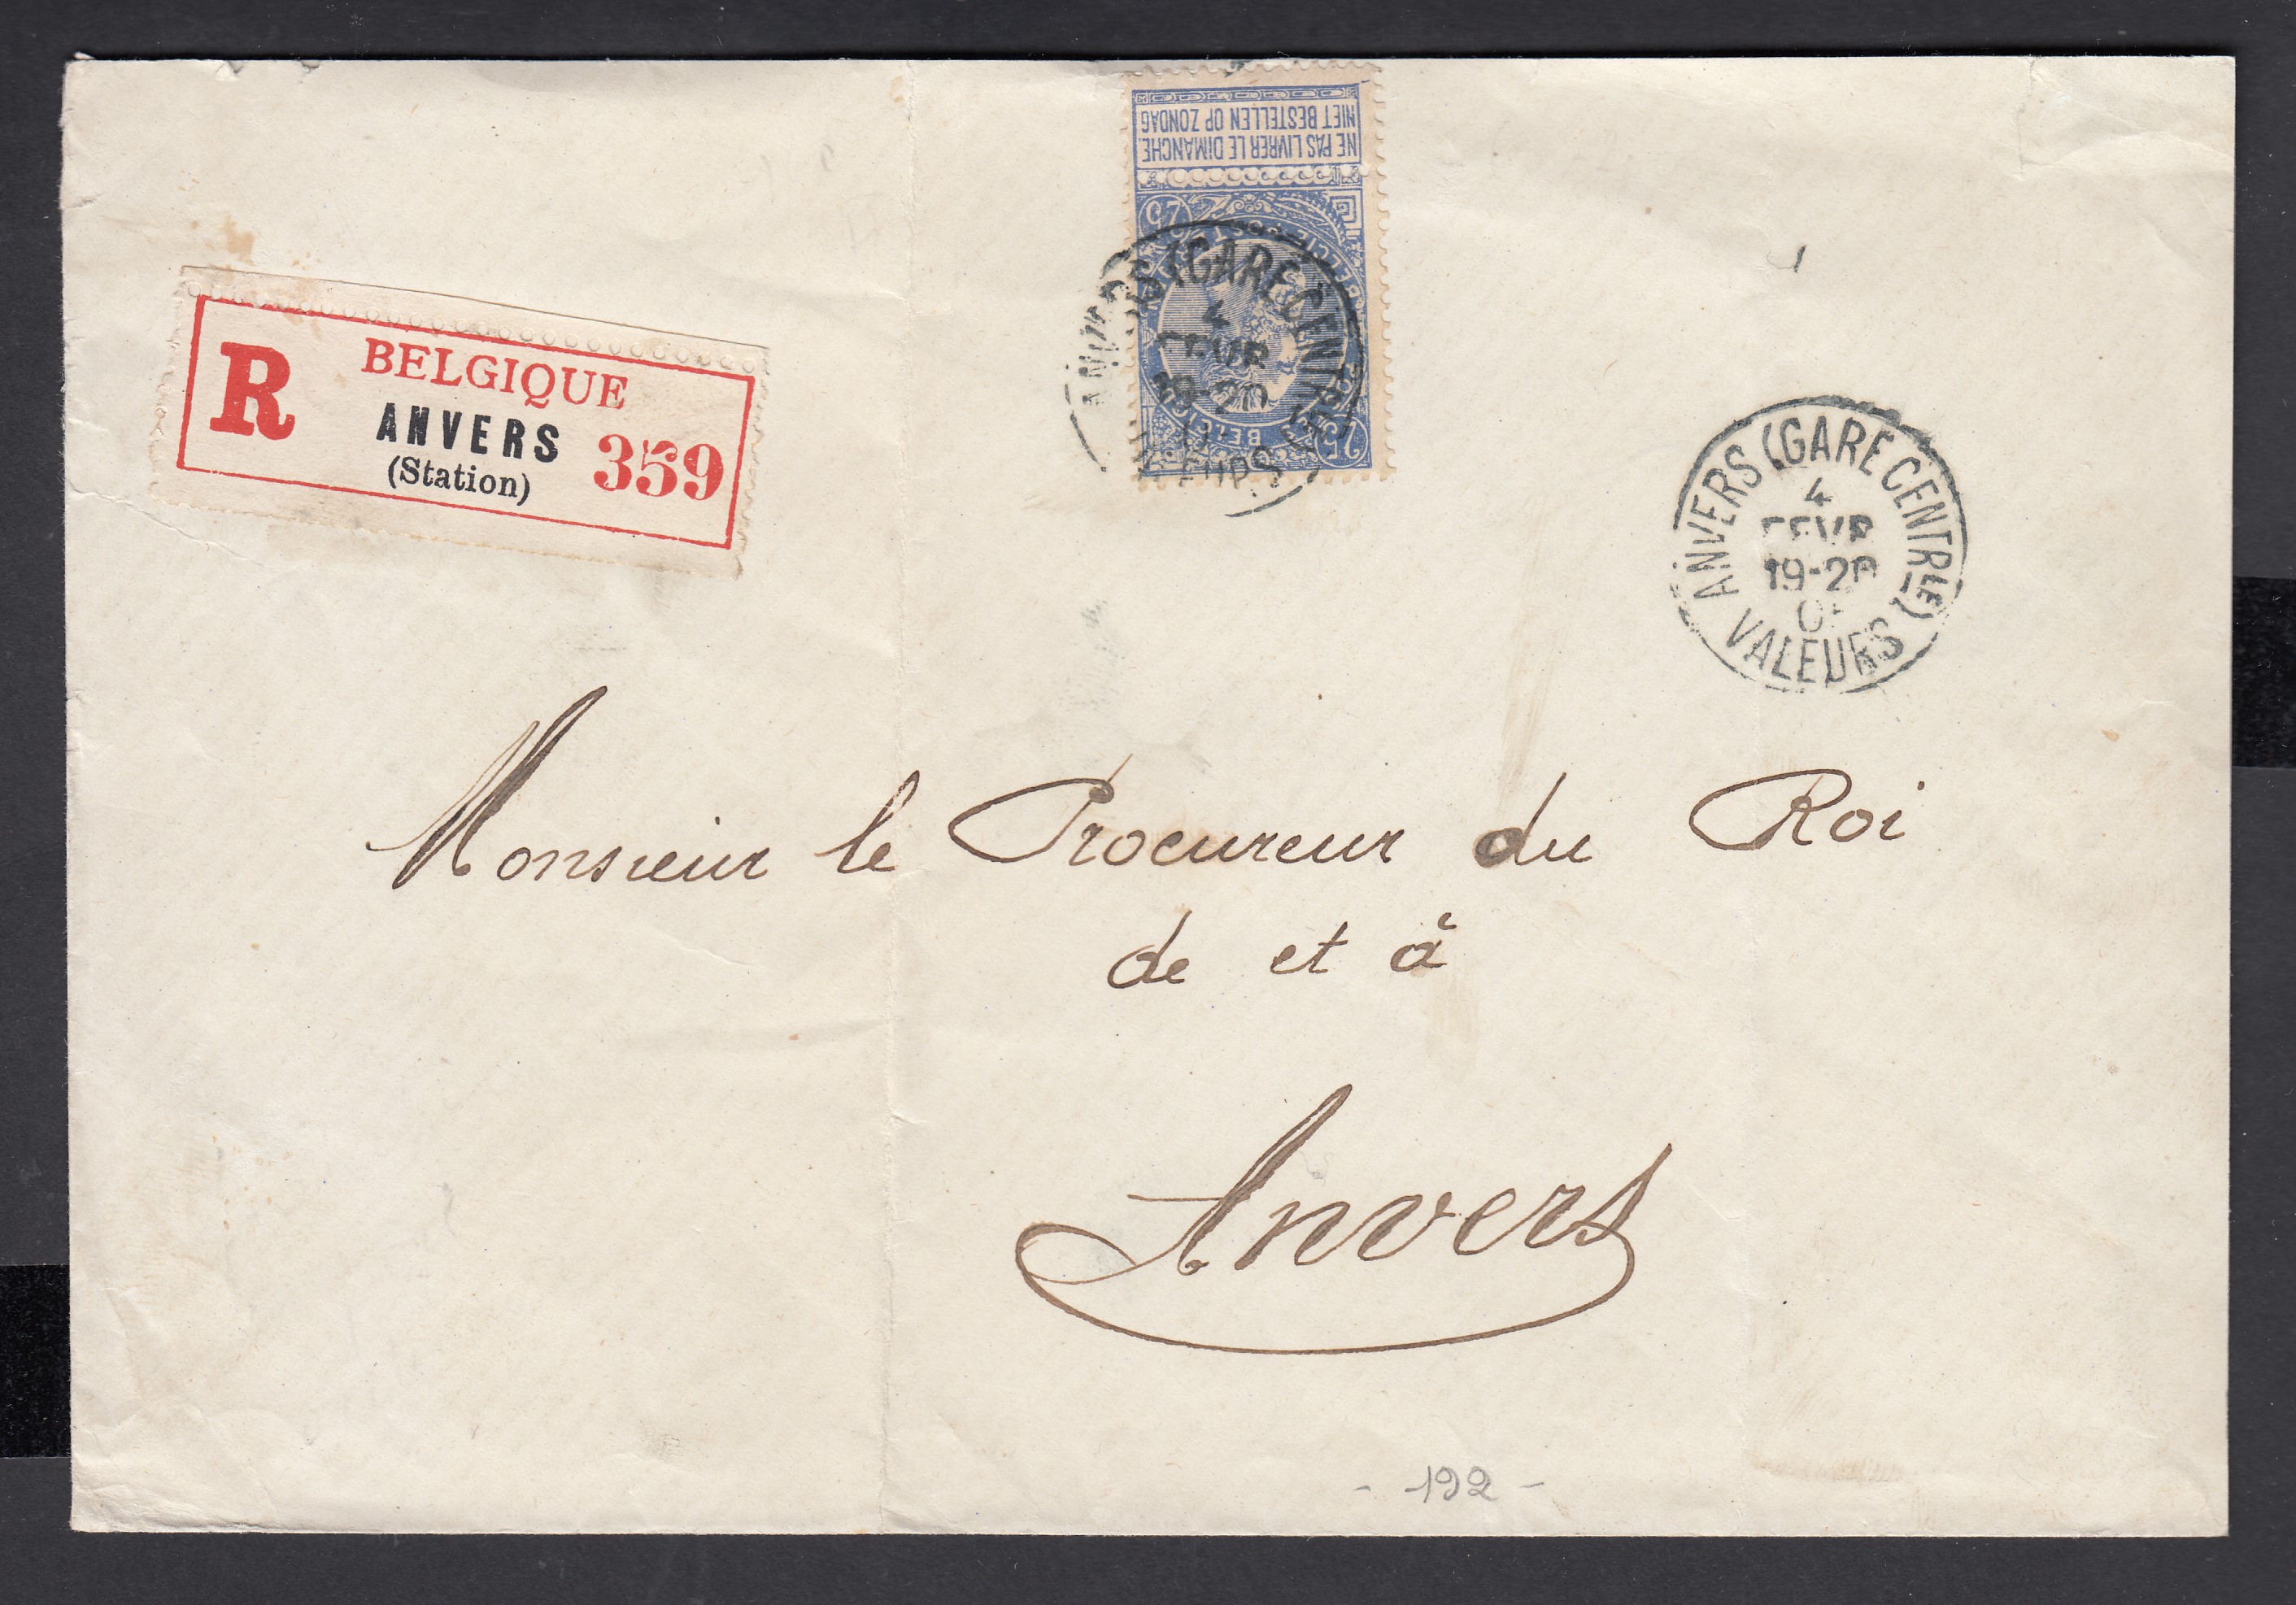 NE PAS LIVRER LE DIMANCHE
NIET BESTELLEN OP ZONDAG
25
25
ANVERS (GARE CENTRALE)
4
FEVR
R
BELGIQUE
ANVERS
(Station)
359
ANVERS (GARE CENTRLE)
4
FEVR
19-20
VALEURS
Monsieur le Procureur du Roi
de et à
Anvers
- 192 -